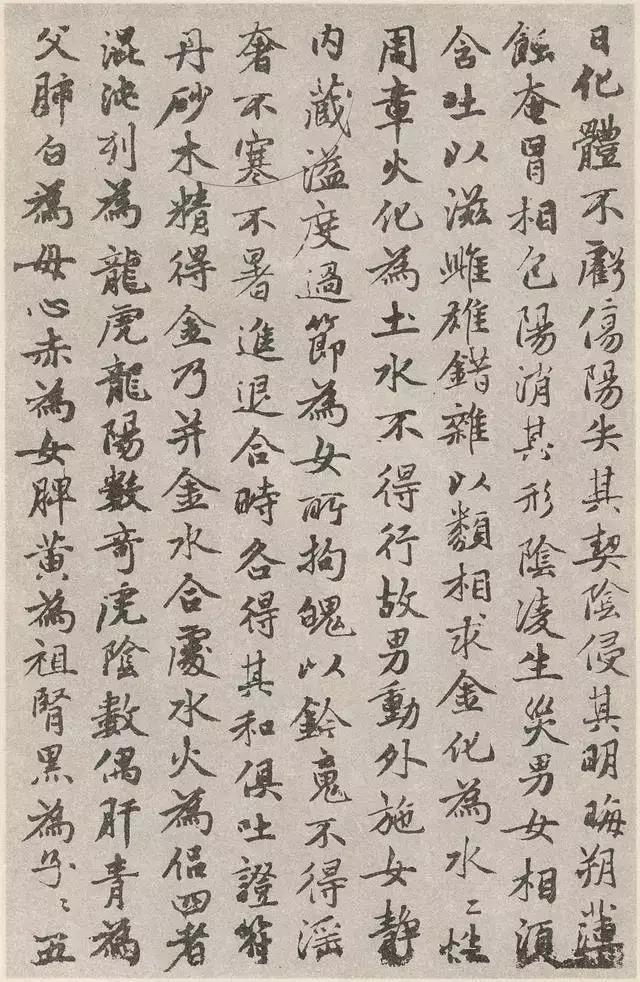 日化體不虧傷陽失其契陰侵其明晦朔薄
蝕奄冒相包陽消其形陰凌生災男女相須
含吐以滋雌雄錯雜以類相求金化為水〻性
周章火化為土水不得行故男動外施女靜
内藏溢度過節為女所拘魄以鈐䰟不得淫
奢不寒不暑進退合時各得其和俱吐證符
丹砂木精得金乃并金水合處水火為侣四者
混沌列為龍虎龍陽數奇虎陰數偶肝青為
父肺白為母心赤為女脾黄為祖腎黑為子〻五